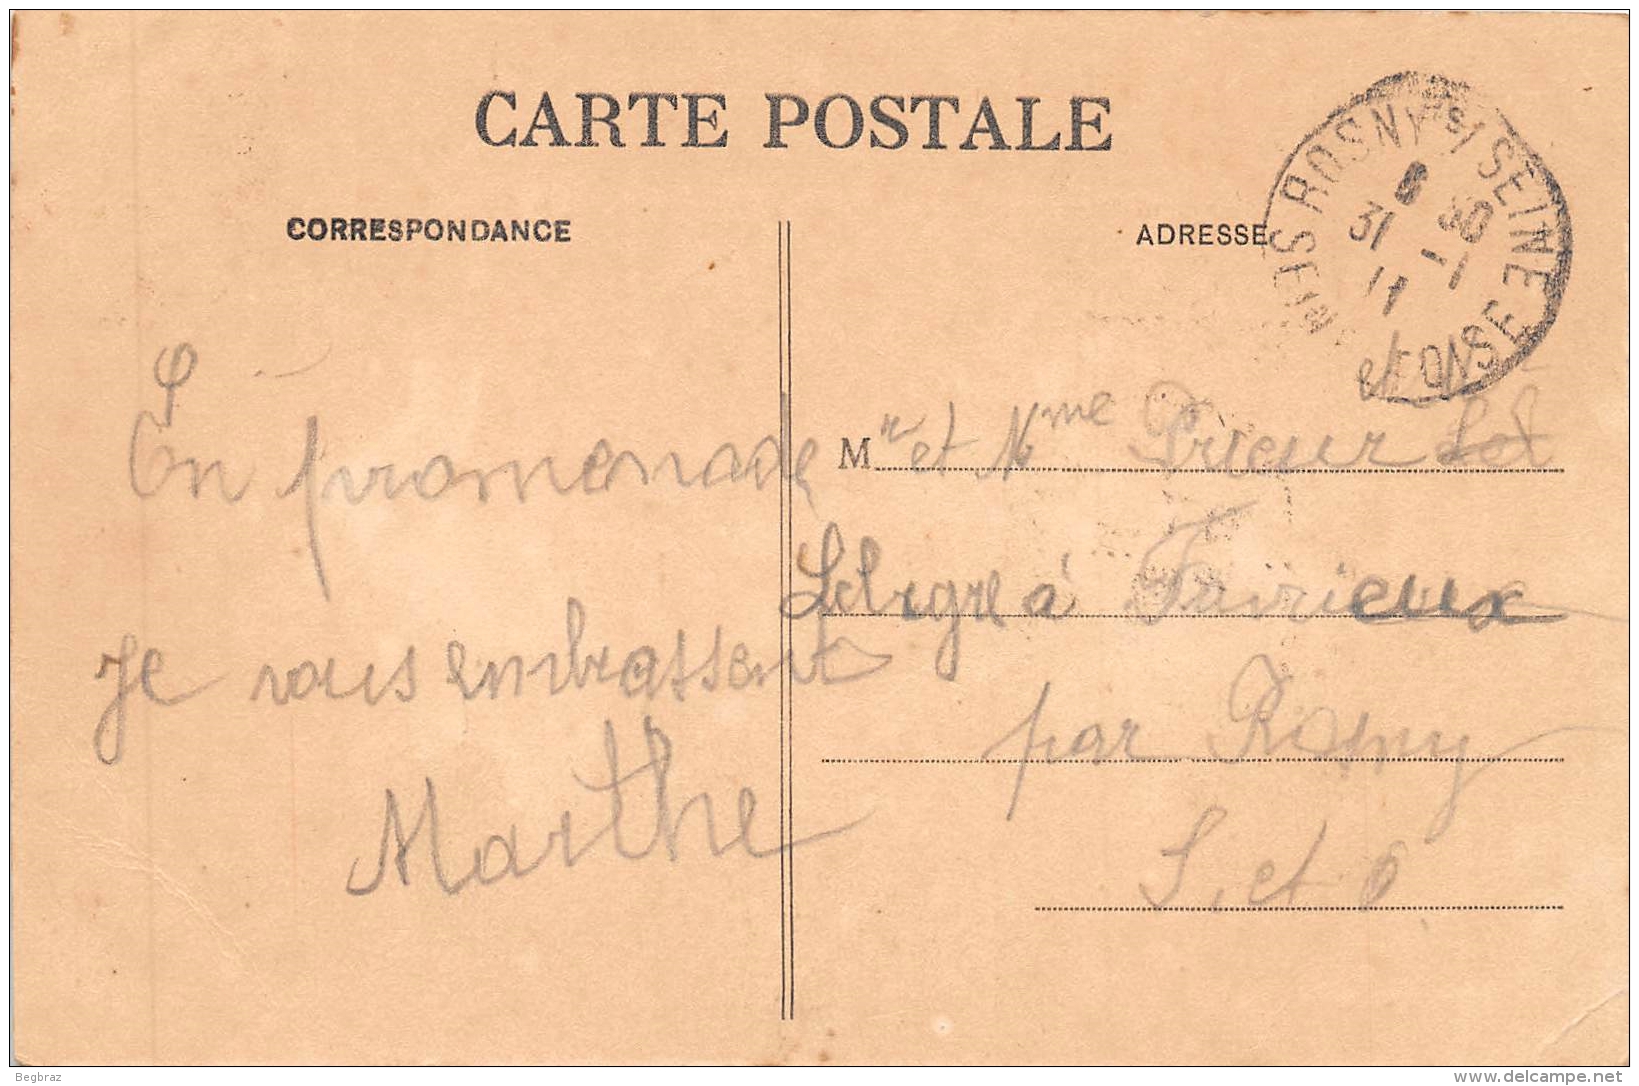 CARTE POSTALE
CORRESPONDANCE
ADRESSE
ROSNY S/ SEINE
8 30
31 -1
11
En promenade
je vous embrassent
Marthe
M r et Mme Prieur
à
par Rosny
S. et O
Begbraz
www.delcampe.net